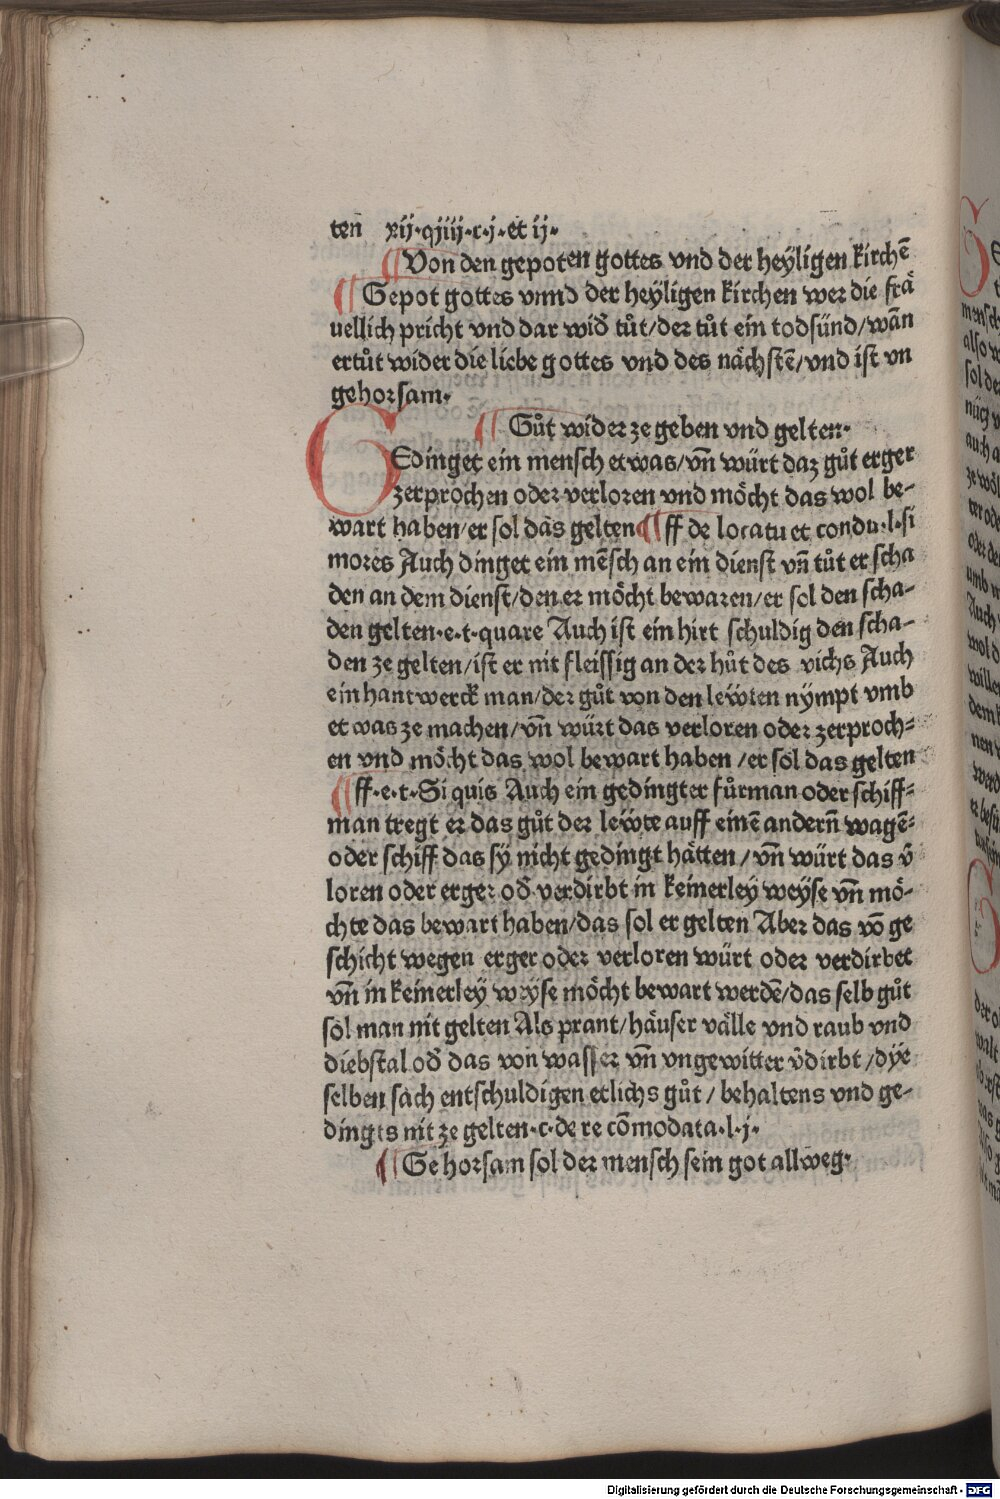 ten xij·qiiij·c·j·et ij·
¶ Von den gepoten gottes vnd der heyligen kirchē
¶ Gepot gottes vnnd der heyligen kirchen wer die frä
uellich pricht vnd dar wid̄ tůt/der tůt ein todsünd/wān
er tůt wider die liebe gottes vnd des nächstē/vnd ist vn
gehorsam·
¶ Gůt wider ze geben vnd gelten·
GEdinget ein mensch etwas/vn̄ würt daz gůt erger
zerprochen oder verloren vnd möcht das wol be-
wart haben/er sol das gelten ¶ ff de locatu et condu·l·si
mores Auch dinget ein mēsch an ein dienst vn̄ tůt er scha
den an dem dienst/den er möcht bewaren/er sol den scha-
den gelten·e·t·quare Auch ist ein hirt schuldig den scha-
den ze gelten/ist er nit fleissig an der hůt des vichs Auch
ein hantwerck man/der gůt von den lewten nympt vmb
etwas ze machen/vn̄ würt das verloren oder zerproch-
en vnd möcht das wol bewart haben/er sol das gelten
¶ ff·e·t·Si quis Auch ein gedingter fůrman oder schiff-
man tregt er das gůt der lewte auff einē andern̄ wagē-
oder schiff das sy nicht gedingt hätten/vn̄ würt das v̄
loren oder erger od̄ verdirbt in keinerley weyse vn̄ mö-
chte das bewart haben/das sol er gelten Aber das vō ge
schicht wegen erger oder verloren würt oder verdirbet
vn̄ in keinerley weyse möcht bewart werdē/das selb gůt
sol man nit gelten Als prant/häuser välle vnd raub vnd
diebstal od̄ das von wasser vn̄ vngewitter v̄dirbt/dye
selben sach entschuldigen etlichs gůt/behaltens vnd ge-
dingts nit ze gelten·c·de re cōmodata·l·j·
¶ Gehorsam sol der mensch sein got allweg·
Digitalisierung gefördert durch die Deutsche Forschungsgemeinschaft - DFG